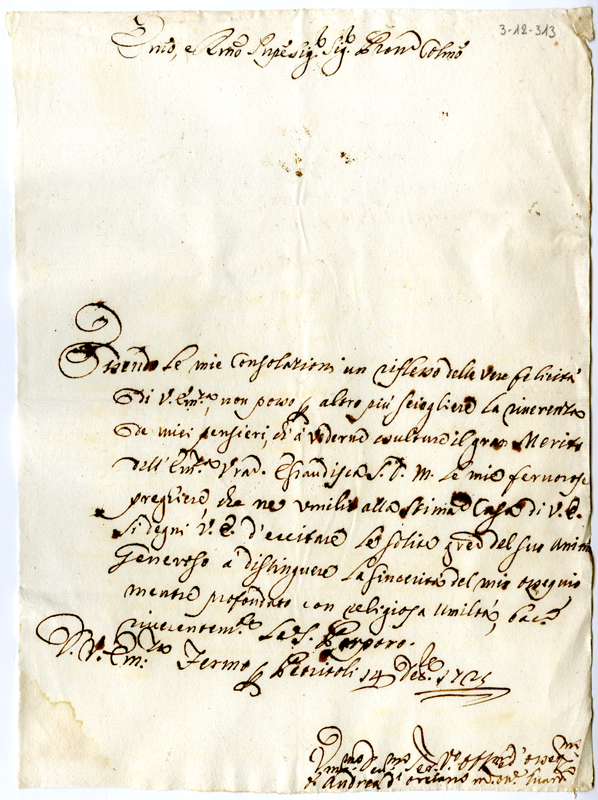 3-12-313
Emo, e Rmo Sigr. Sigr. Pron Colmo
Essendo le mie Consolazioni un riflesso delle vere felicità
di V. Emza, non posso altro più sciogliere la riverenza
de miei pensieri, ch'à vederne esultare il gran Merito
dell'Emza Vra. Esaudisca S. D. M. le mie fervorose
preghiere, che ne umilio alla stima Casa di V. E.
Si degni V. E. d'eccitare le solite del suo Animo
Generoso a distinguere la sincerità del mio ossequio
mentre profondato con religiosa umiltà, bacio
riverentemte Le S. Porpore.
D. V. Emza Fermo Petritoli 14 Dec. 1725
Andrea d'